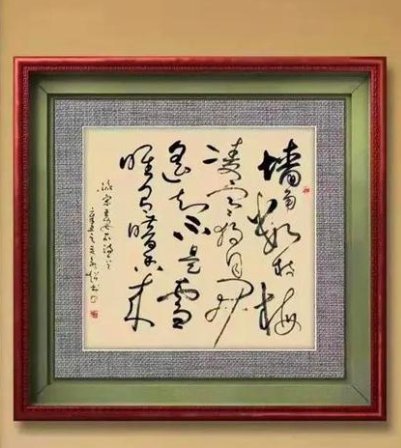 墙角数枝梅
凌寒独自开
遥知不是雪
唯有暗香来